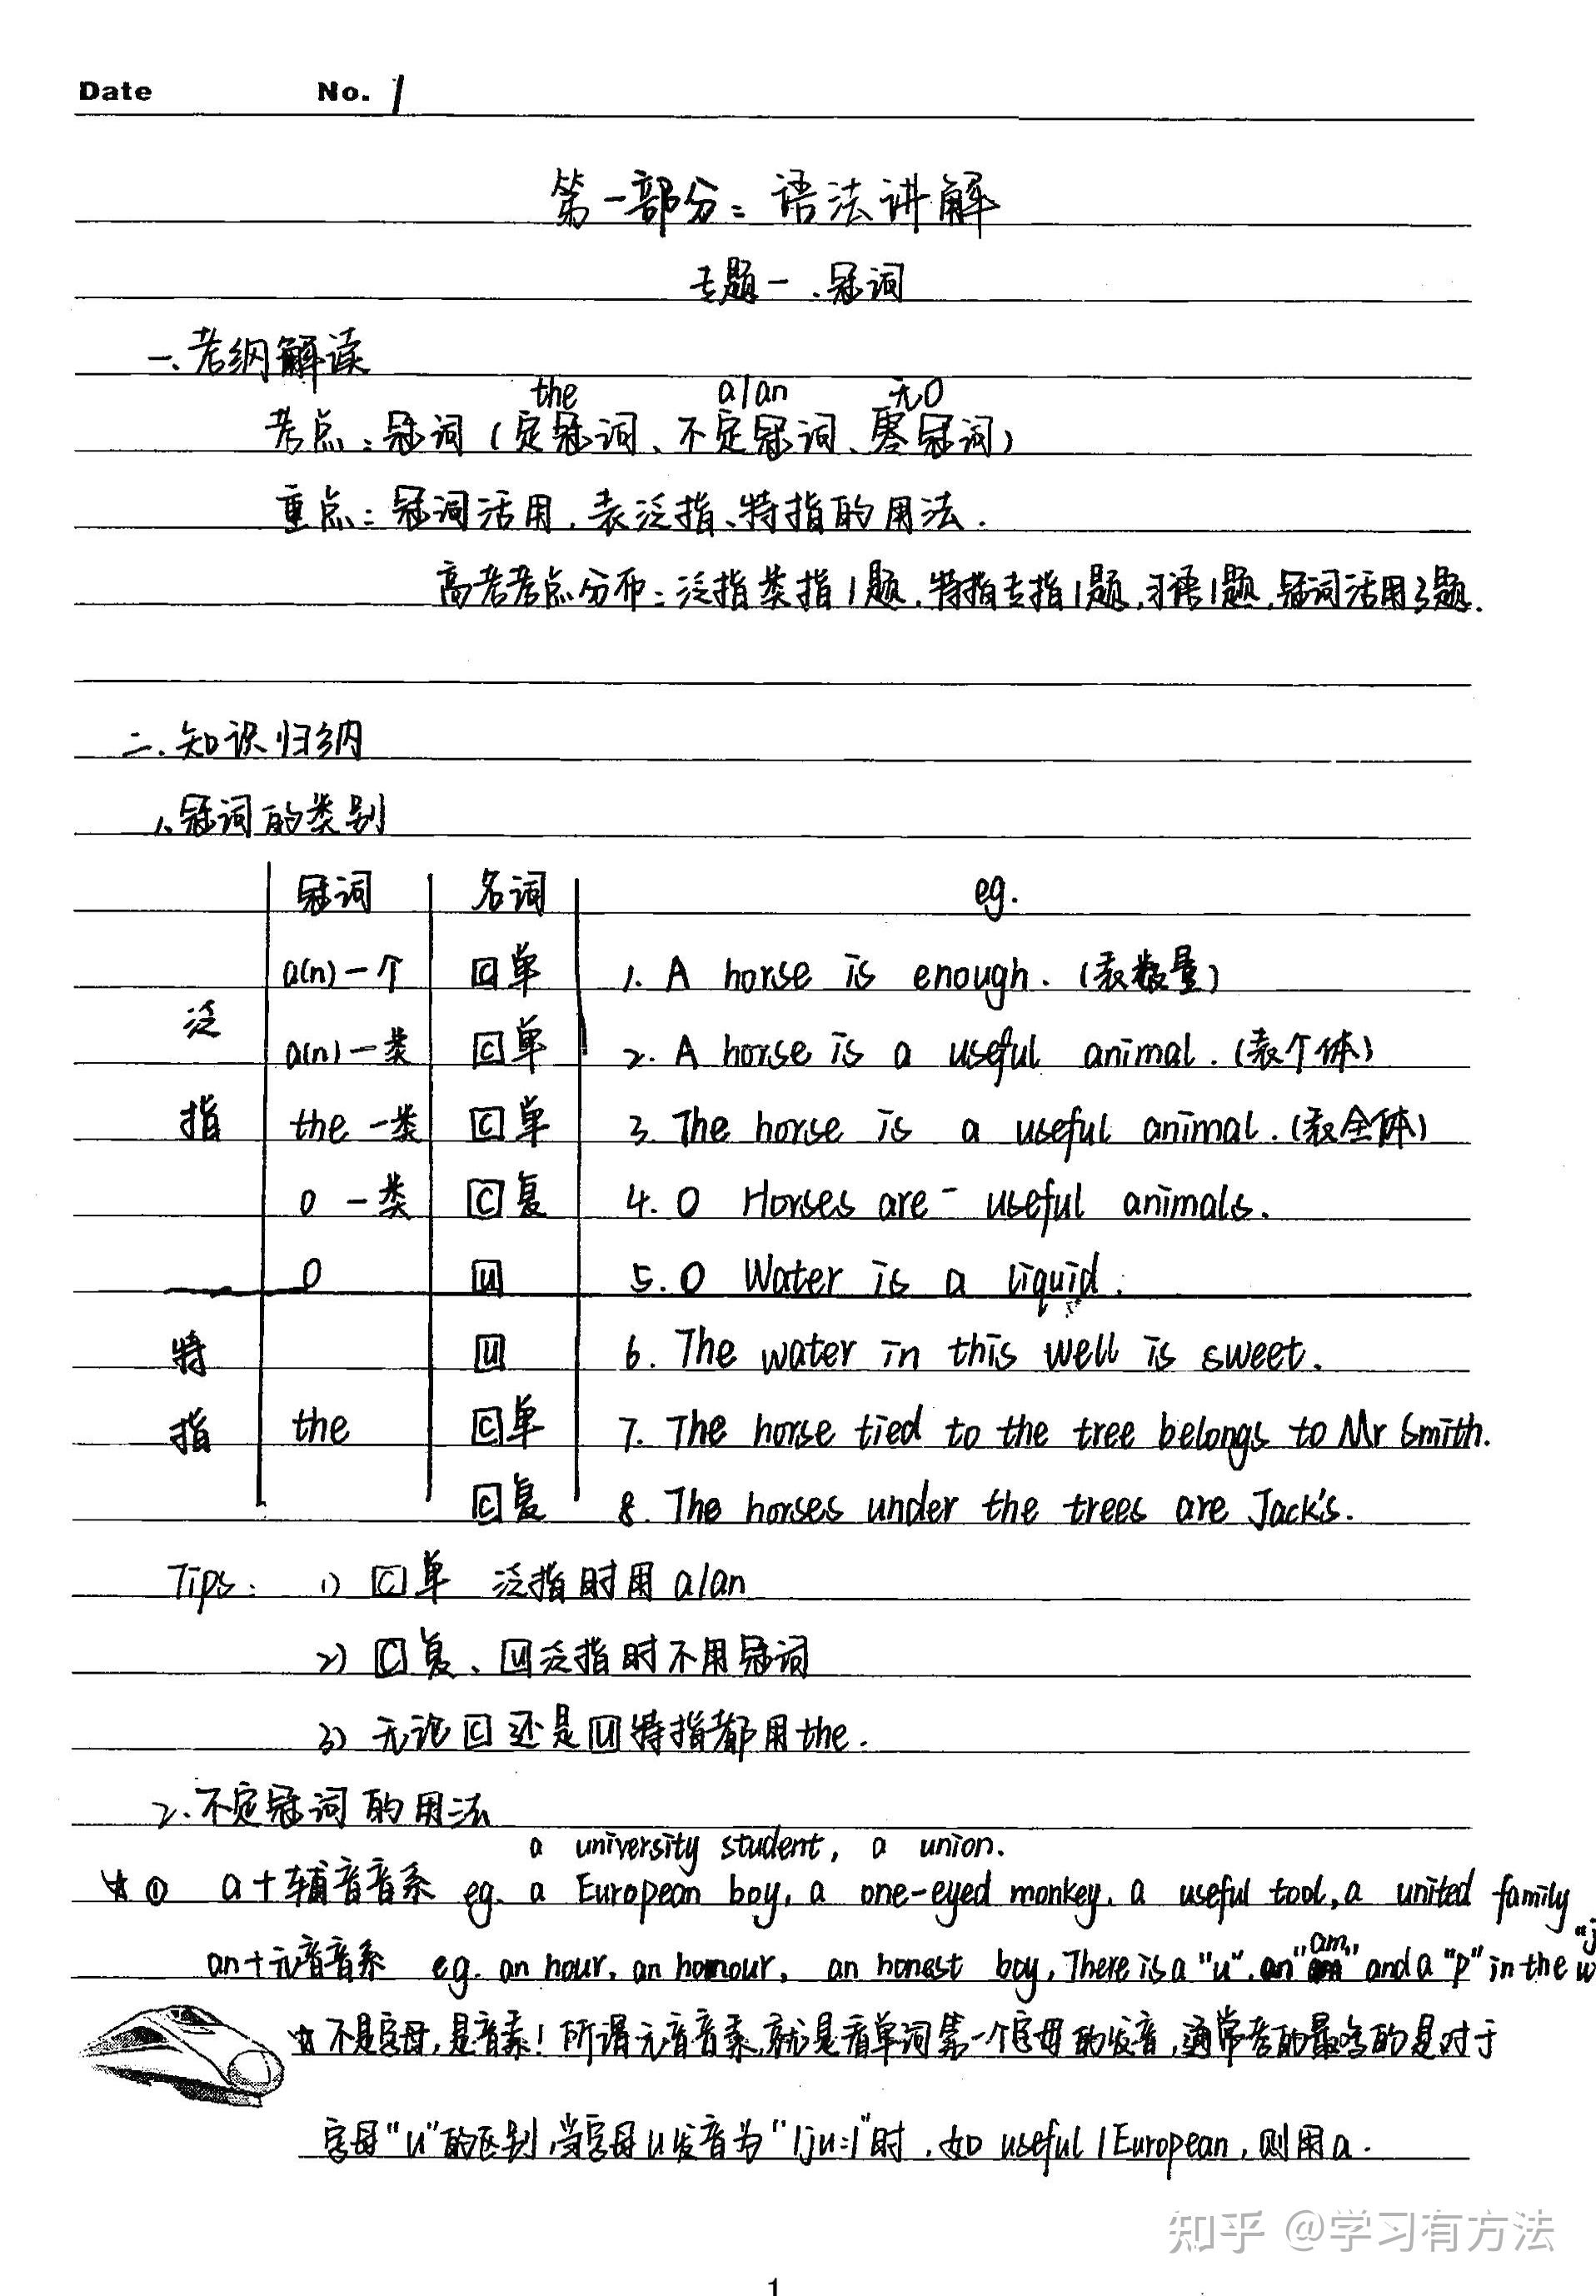 Date No. 1
第一部分：语法讲解
专题一．冠词
一、考纲解读
the a/an 无0
考点：冠词（定冠词、不定冠词、零冠词）
重点：冠词活用，表泛指、特指的用法．
高考考点分布：泛指类指1题，特指专指1题，习语1题，冠词活用3题．
二．知识归纳
1．冠词的类别
冠词 名词 eg.
a(n)一个 C单 1. A horse is enough. (表数量)
泛
a(n)一类 C单 2. A horse is a useful animal. (表个体)
指 the 一类 C单 3. The horse is a useful animal. (表全体)
0 一类 C复 4. 0 Horses are useful animals.
0 U 5. 0 Water is a liquid.
特 U 6. The water in this well is sweet.
指 the C单 7. The horse tied to the tree belongs to Mr Smith.
C复 8. The horses under the trees are Jack's.
Tips: 1) C单 泛指时用 a/an
2) C复、U泛指时不用冠词
3) 无论C还是U特指都用the.
2．不定冠词的用法
a university student, a union.
☆① a+辅音音系 eg. a European boy, a one-eyed monkey, a useful tool, a united family
an+元音音系 eg. an hour, an honour, an honest boy, There is a "u", an "am" and a "p" in the
☆不是字母，是音素！所谓元音音素，就是看单词第一个字母的发音，通常考的最多的是对于
字母"u"的区别，当字母u发音为"/ju:/"时，如 useful / European，则用a.
知乎 @学习有方法
1